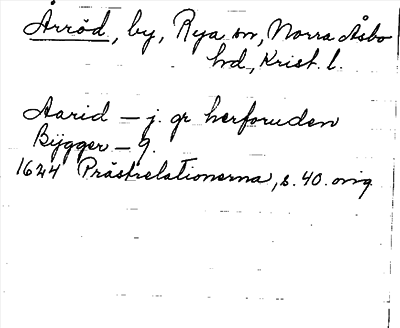 Årröd, by, Rya sn, Norra Åsbo
hd, Krist. l.
Aarid — j. gr herforuden
Bÿgger — 9.
1624 Prästrelationerna, s. 40. orig